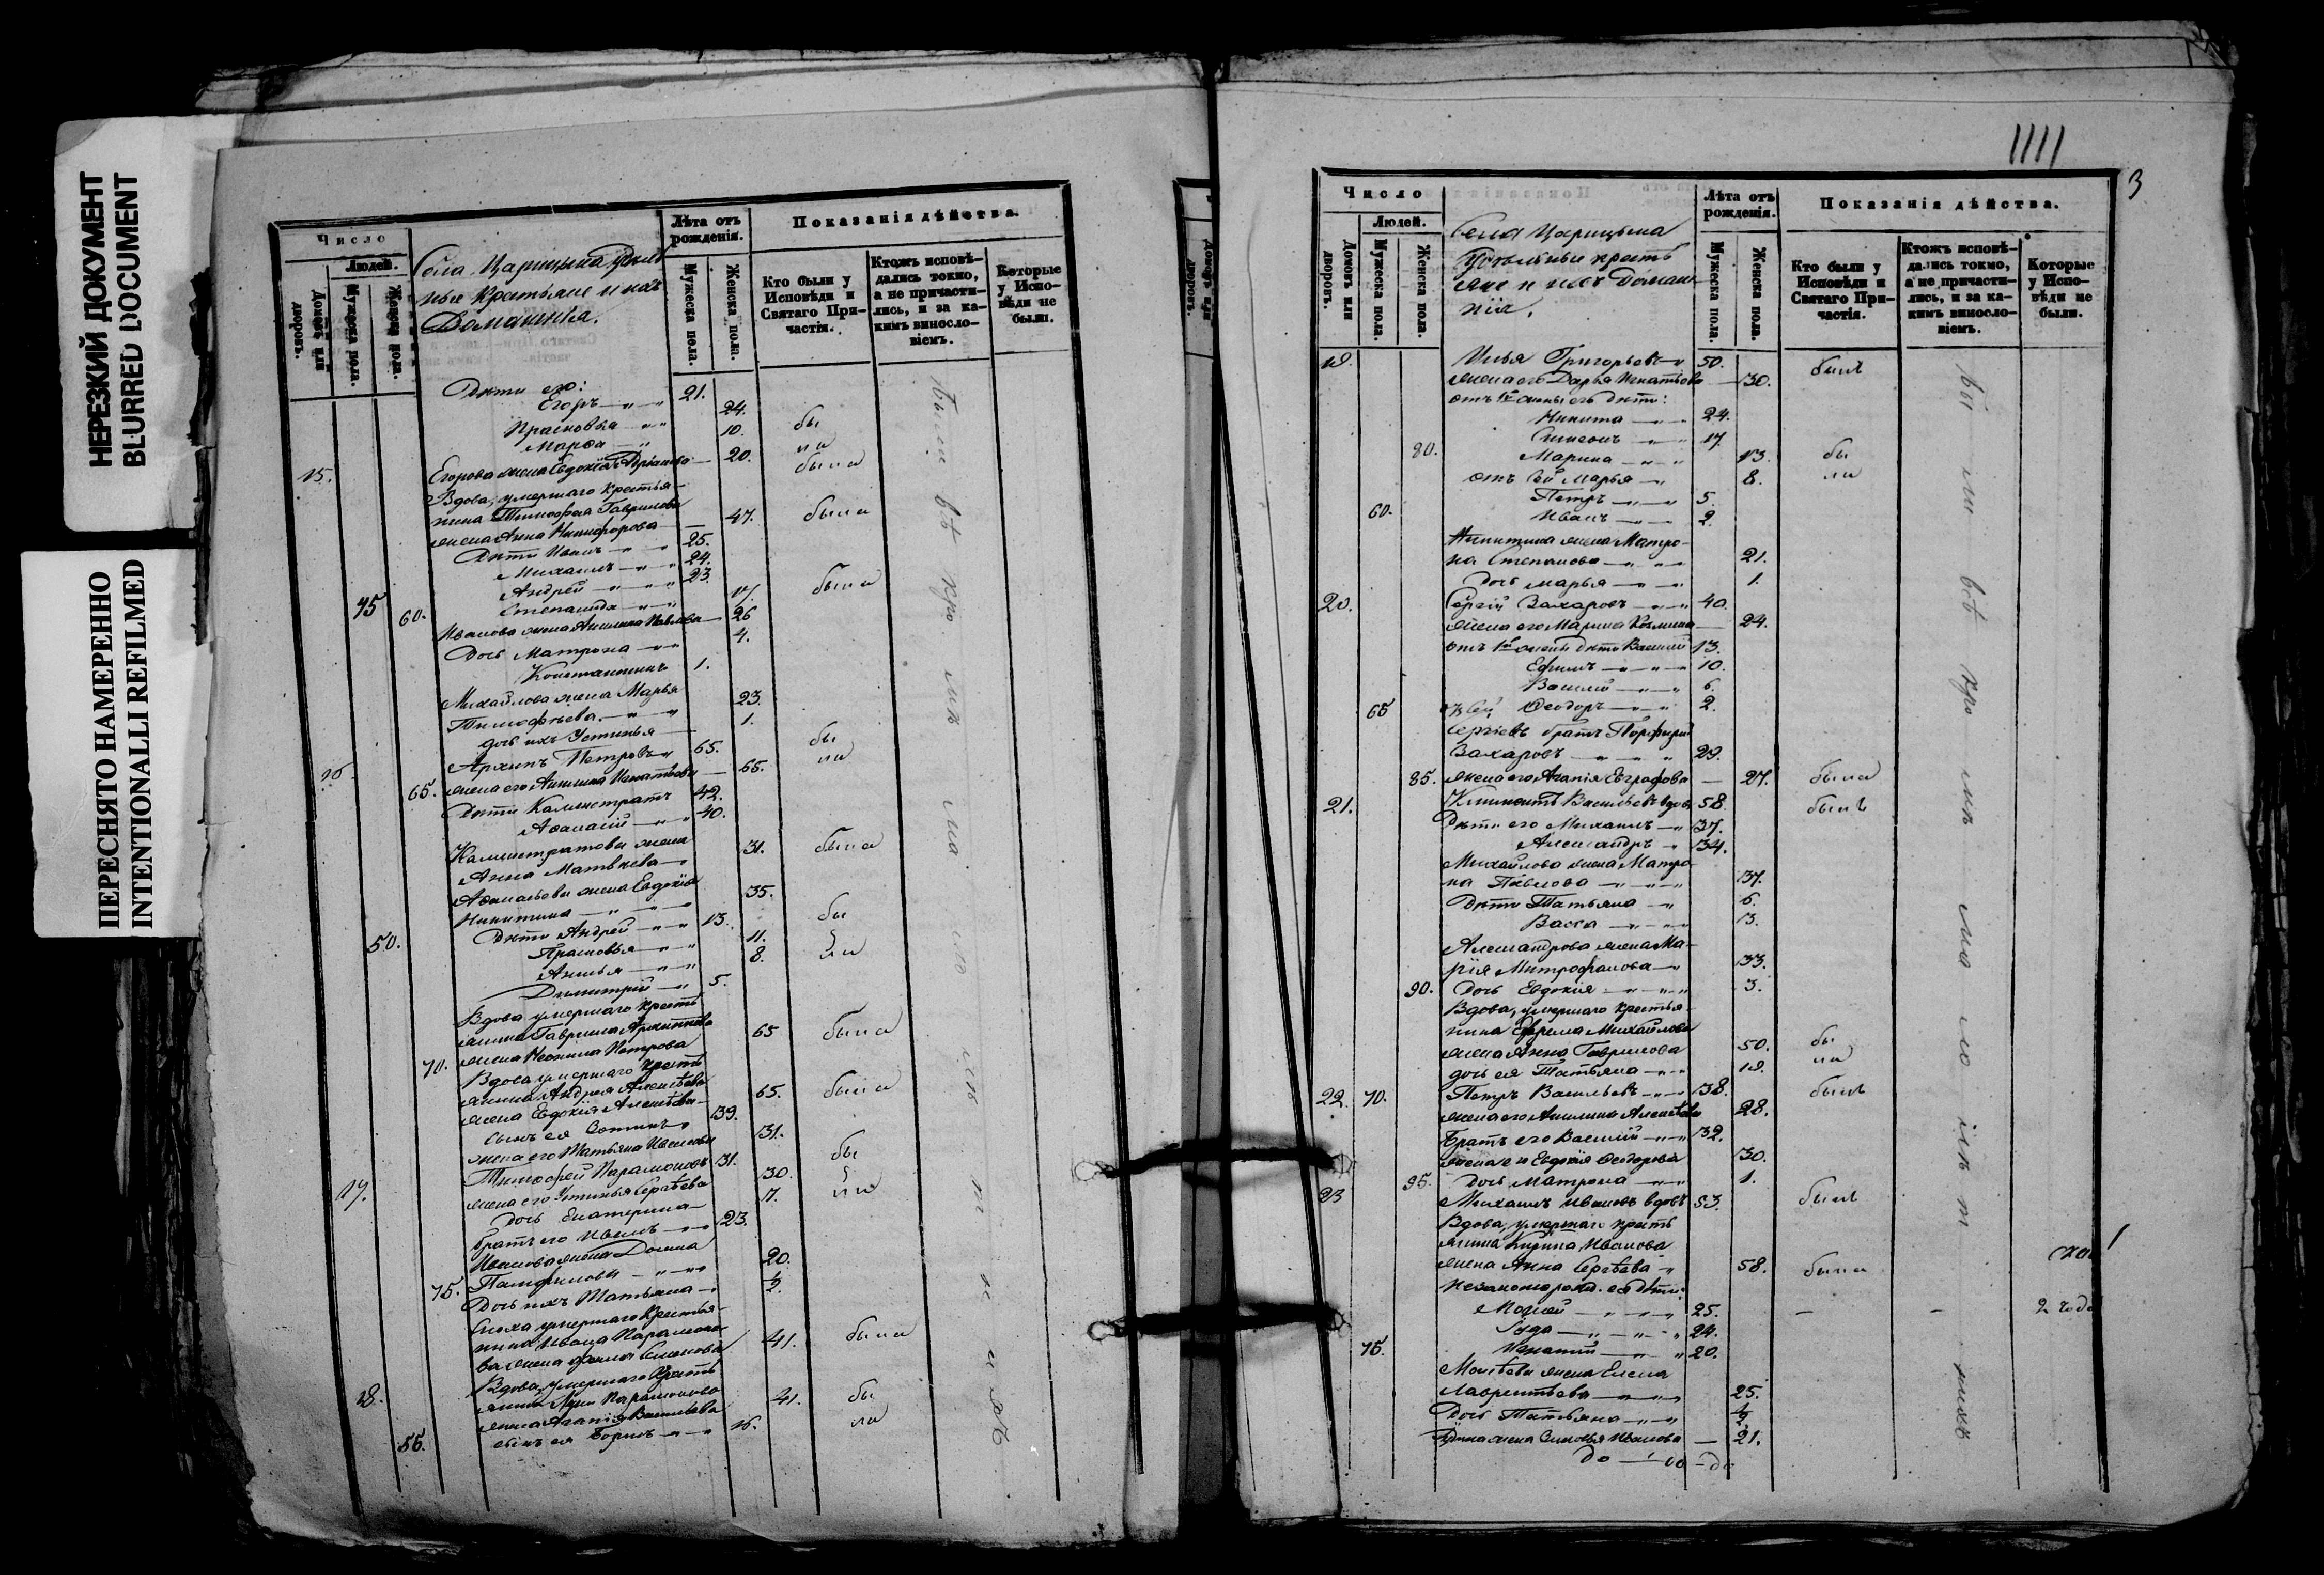 НЕРЕЗКИЙ ДОКУМЕНТ
BLURRED DOCUMENT
ПЕРЕСНЯТО НАМЕРЕННО
INTENTIONALLI REFILMED
Число
Людей.
Домовъ или дворовъ.
Мужеска пола.
Женска пола.
Села Царицына Удѣль
ные крестьяне и ихъ
Домашнiе.
Лѣта отъ рожденія.
Мужеска пола.
Женска пола.
Показанія дѣйства.
Кто были у Исповѣди и Святаго Причастія.
Ктожъ исповѣдались токмо, а не причастились, и за какимъ винословіемъ.
Которые у Исповѣди не были.
Дѣти его:
Егоръ 21.
Прасковья 24. бы
Марѳа 10. ли
15. Егорова жена Евдокія 20. была
Вдова, умершаго крестья-
нина Тимофея Гаврилова
жена Анна Никифорова 47. была
Дѣти Иванъ 25.
Михаилъ 24.
Андрей 23.
45 60. Степанида 17. была
Иванова жена Акилина Павлова 26
Дочь Матрона 4.
Константинъ 1.
Михайлова жена Марья
Тимофѣева 23.
дочь ихъ Устинья 1.
16. Архипъ Петровъ 65. бы
65. жена его Акилина Игнатьева 65. ли
Дѣти Калистратъ 42.
Аѳанасій 40.
Калистратова жена
Анна Матвѣева 31. была
Аѳанасьева жена Евдокія
Никитина 35.
50. Дѣти Андрей 13. бы
Прасковья 11.
Акилья 8. ли
Димитрій 5.
Вдова умершаго крестъ
янина Гаврила Архипова
70. жена Неонила Петрова 65 была
Вдова умершаго крестъ
янина Андрея Алексѣева
жена Евдокія Алексѣева 65. была
сынъ ея 39.
жена его Татьяна Иванова 31.
17. Тимофей Парамоновъ 31. бы
жена его Устинья Сергѣева 30.
Дочь Екатерина 7. ли
братъ его Иванъ 23.
Иванова жена Домна
75. Памфилова 20.
Дочь ихъ Татьяна ½.
Сноха умершаго крестья-
нина Ивана Парамоно-
ва жена 41. была
Вдова, умершаго крестъ
18. янина Парамонова
жена Агапія Васильева 41. бы
55. сынъ ея Борисъ 16. ли
3
Число
Людей.
Домовъ или дворовъ.
Мужеска пола.
Женска пола.
Села Царицына
Удѣльные кресть
яне и ихъ Домаш
нія.
Лѣта отъ рожденія.
Мужеска пола.
Женска пола.
Показанія дѣйства.
Кто были у Исповѣди и Святаго Причастія.
Ктожъ исповѣдались токмо, а не причастились, и за какимъ винословіемъ.
Которые у Исповѣди не были.
19. Илья Григорьевъ 50. былъ
жена его Дарья Игнатьева 30.
отъ 1й жены его дѣти:
Никита 24.
Симеонъ 17.
80. Марина 13. бы
отъ сей Марья 8. ли
Петръ 5.
60. Иванъ 2.
Никитина жена Матро-
на Степанова 21.
Дочь Марья 1.
20. Сергій Захаровъ 40.
жена его Марина Козмина 24.
отъ 1й жены дѣти Василій 13.
Ефимъ 10.
Василій 6.
65 Ѳеодоръ 2.
Сергіевъ братъ Порфирій
Захаровъ 29.
85. жена его Агапія Евграфова 27. была
21. Климентъ Васильевъ вдовъ 58. былъ
Дѣти его Михаилъ 37.
Александръ 34.
Михайлова жена Матро
на Павлова 37.
Дѣти Татьяна 6.
Васса 3.
Александрова жена Ма-
рія Митрофанова 33.
90. Дочь Евдокія 3.
Вдова, умершаго крестья-
нина Ефрема Михайлова
жена Анна Гаврилова 50. бы
дочь ея Татьяна 19. ли
22. 70. Петръ Васильевъ 38. былъ
жена его Акилина Алексѣева 28.
Братъ его Василій 32.
жена его Евдокія Ѳеодорова 30.
95. Дочь Матрона 1.
23 Михаилъ Ивановъ вдовъ 53. былъ
Вдова, умершаго кресть
янина Кирила Иванова
жена Анна Сергѣева 58. была
Незаконорожд. ея дѣти:
Моисей 25. — — 2 года
Іуда 24.
75. Игнатій 20.
Моисѣева жена Елена
Лаврентьева 25.
Дочь Татьяна ½.
Іудина жена Соловья Иванова 21.